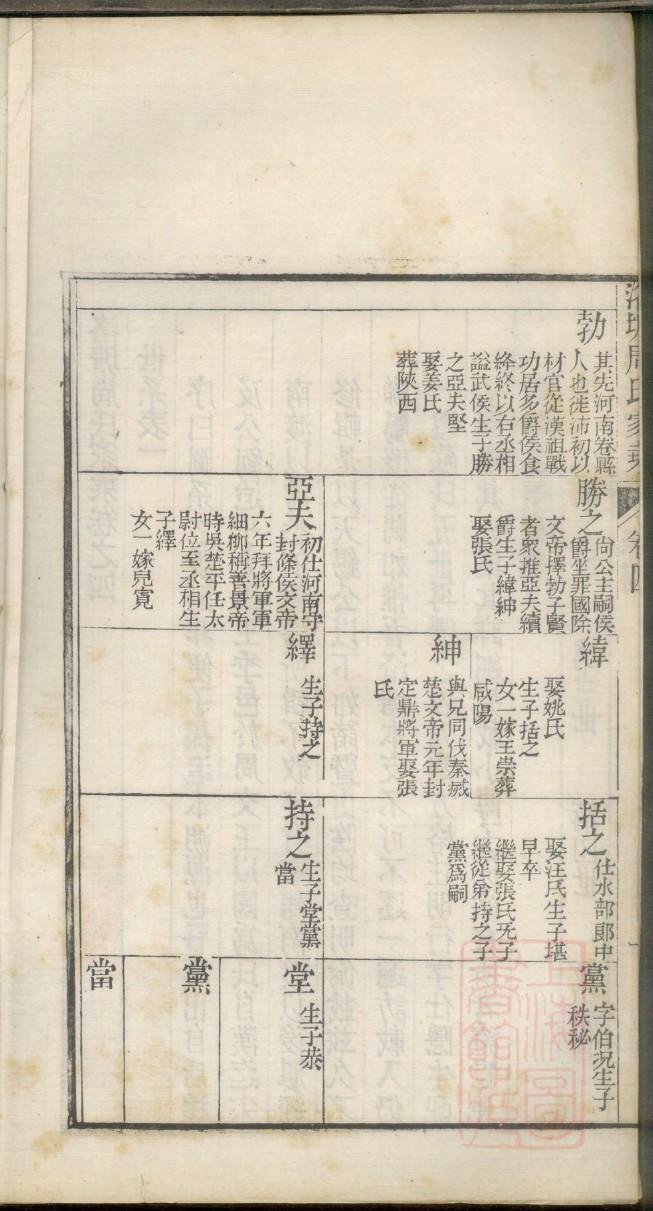 周氏家乘
卷四
勃
其先河南卷縣
人也徙沛初以
材官從漢祖戰
功居多爵侯食
絳終以右丞相
謚武侯生子勝
之亞夫堅
娶姜氏
葬陝西
勝之
尙公主嗣侯
爵坐罪國除
文帝擇勃子賢
者衆推亞夫續
爵生子緯紳
娶張氏
亞夫
初仕河南守
封條侯文帝
六年拜將軍軍
細柳稱善景帝
時吳楚平任太
尉位至丞相生
子繹
女一嫁兒寬
緯
娶姚氏
生子括之
女一嫁王崇葬
咸陽
紳
與兄同伐秦滅
楚文帝元年封
定鼎將軍娶張
氏
繹
生子持之
括之
仕水部郎中
娶汪氏生子堪
早卒
繼娶張氏旡子
繼從弟持之子
黨爲嗣
持之
生子堂黨
當
黨
字伯况生子
秩秘
堂
生子恭
黨
當
上海圖書館藏